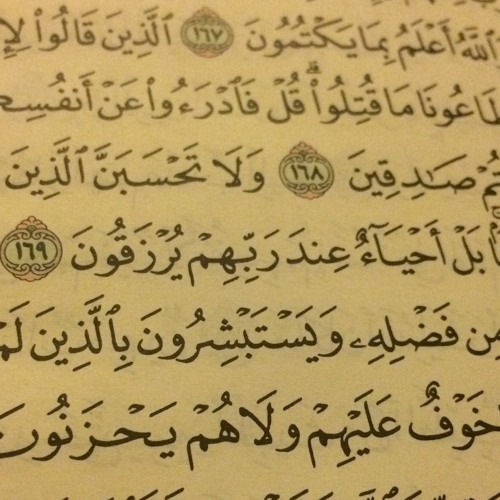 وَٱللَّهُ أَعْلَمُ بِمَا يَكْتُمُونَ ١٦٧ ٱلَّذِينَ قَالُوا۟ لِإِ
طَاعُونَا مَا قُتِلُوا۟ ۗ قُلْ فَٱدْرَءُوا۟ عَنْ أَنفُسِ
تُمْ صَٰدِقِينَ ١٦٨ وَلَا تَحْسَبَنَّ ٱلَّذِينَ
بَلْ أَحْيَآءٌ عِندَ رَبِّهِمْ يُرْزَقُونَ ١٦٩
مِن فَضْلِهِۦ وَيَسْتَبْشِرُونَ بِٱلَّذِينَ لَمْ
خَوْفٌ عَلَيْهِمْ وَلَا هُمْ يَحْزَنُونَ